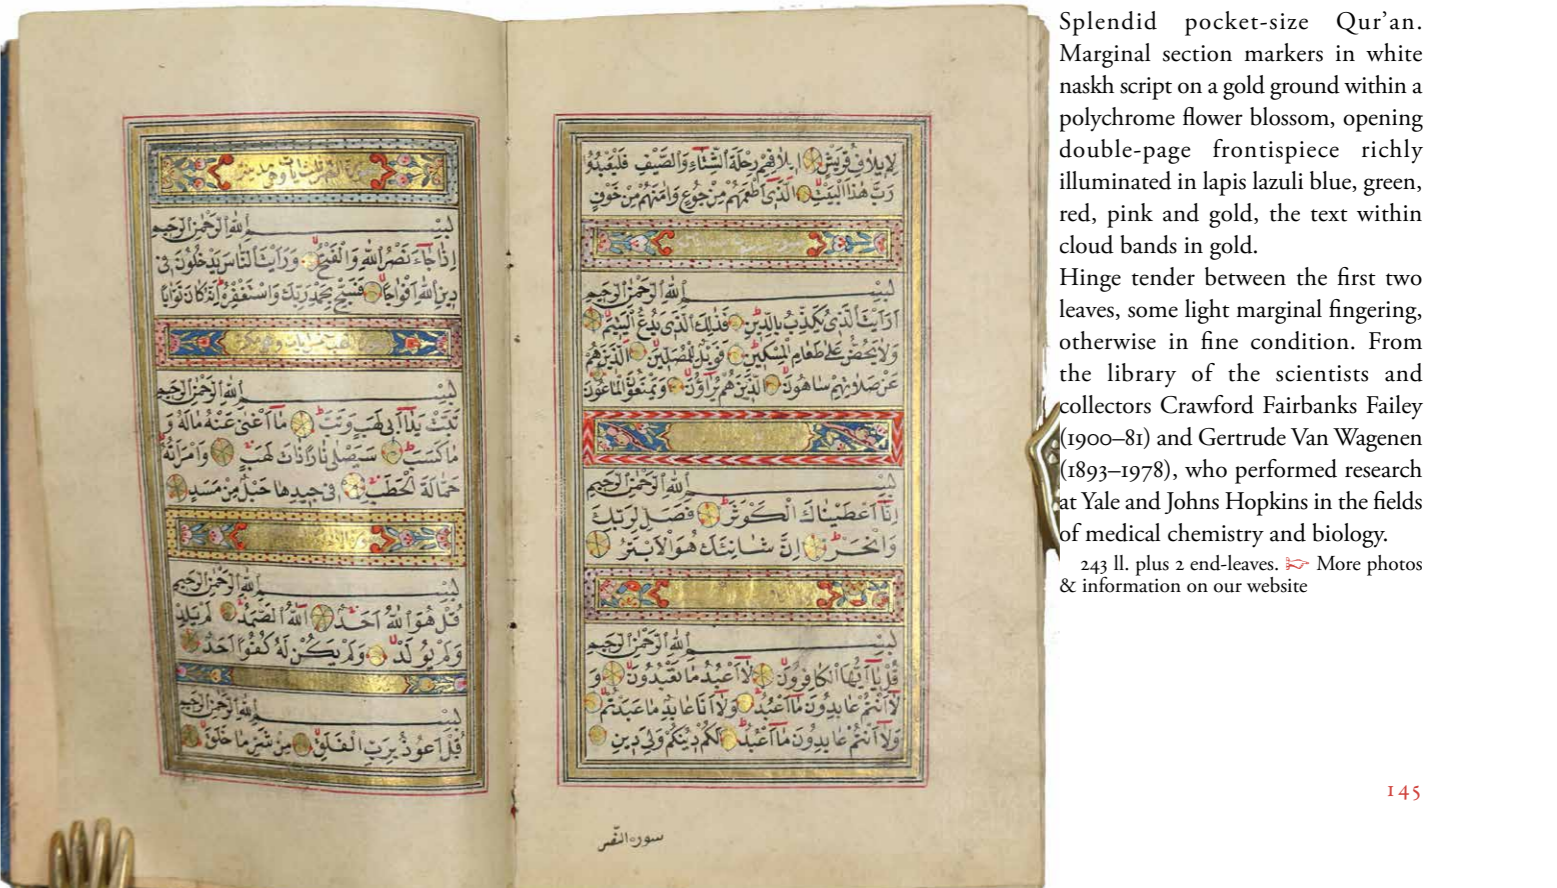 لإيلاف قريش إيلافهم رحلة الشتاء والصيف فليعبدوا
رب هذا البيت الذي أطعمهم من جوع وآمنهم من خوف
بسم الله الرحمن الرحيم
ارايت الذي يكذب بالدين فذلك الذي يدع اليتيم
ولا يحض على طعام المسكين فويل للمصلين الذين هم
عن صلاتهم ساهون الذين هم يراؤن ويمنعون الماعون
بسم الله الرحمن الرحيم
إنا أعطيناك الكوثر فصل لربك
وانحر إن شانئك هو الأبتر
بسم الله الرحمن الرحيم
قل يا أيها الكافرون لا أعبد ما تعبدون و
لا أنتم عابدون ما أعبد ولا أنا عابد ما عبدتم
ولا أنتم عابدون ما أعبد لكم دينكم ولي دين
سورة النصر
بسم الله الرحمن الرحيم
إذا جاء نصر الله والفتح ورأيت الناس يدخلون في
دين الله أفواجا فسبح بحمد ربك واستغفره إنه كان توابا
بسم الله الرحمن الرحيم
تبت يدا أبي لهب وتب ما أغنى عنه ماله و
ما كسب سيصلى نارا ذات لهب وامرأته
حمالة الحطب في جيدها حبل من مسد
بسم الله الرحمن الرحيم
قل هو الله أحد الله الصمد لم يلد
ولم يولد ولم يكن له كفوا أحد
بسم الله الرحمن الرحيم
قل أعوذ برب الفلق من شر ما خلق
Splendid pocket-size Qur’an.
Marginal section markers in white
naskh script on a gold ground within a
polychrome flower blossom, opening
double-page frontispiece richly
illuminated in lapis lazuli blue, green,
red, pink and gold, the text within
cloud bands in gold.
Hinge tender between the first two
leaves, some light marginal fingering,
otherwise in fine condition. From
the library of the scientists and
collectors Crawford Fairbanks Failey
(1900–81) and Gertrude Van Wagenen
(1893–1978), who performed research
at Yale and Johns Hopkins in the fields
of medical chemistry and biology.
243 ll. plus 2 end-leaves. More photos
& information on our website
145